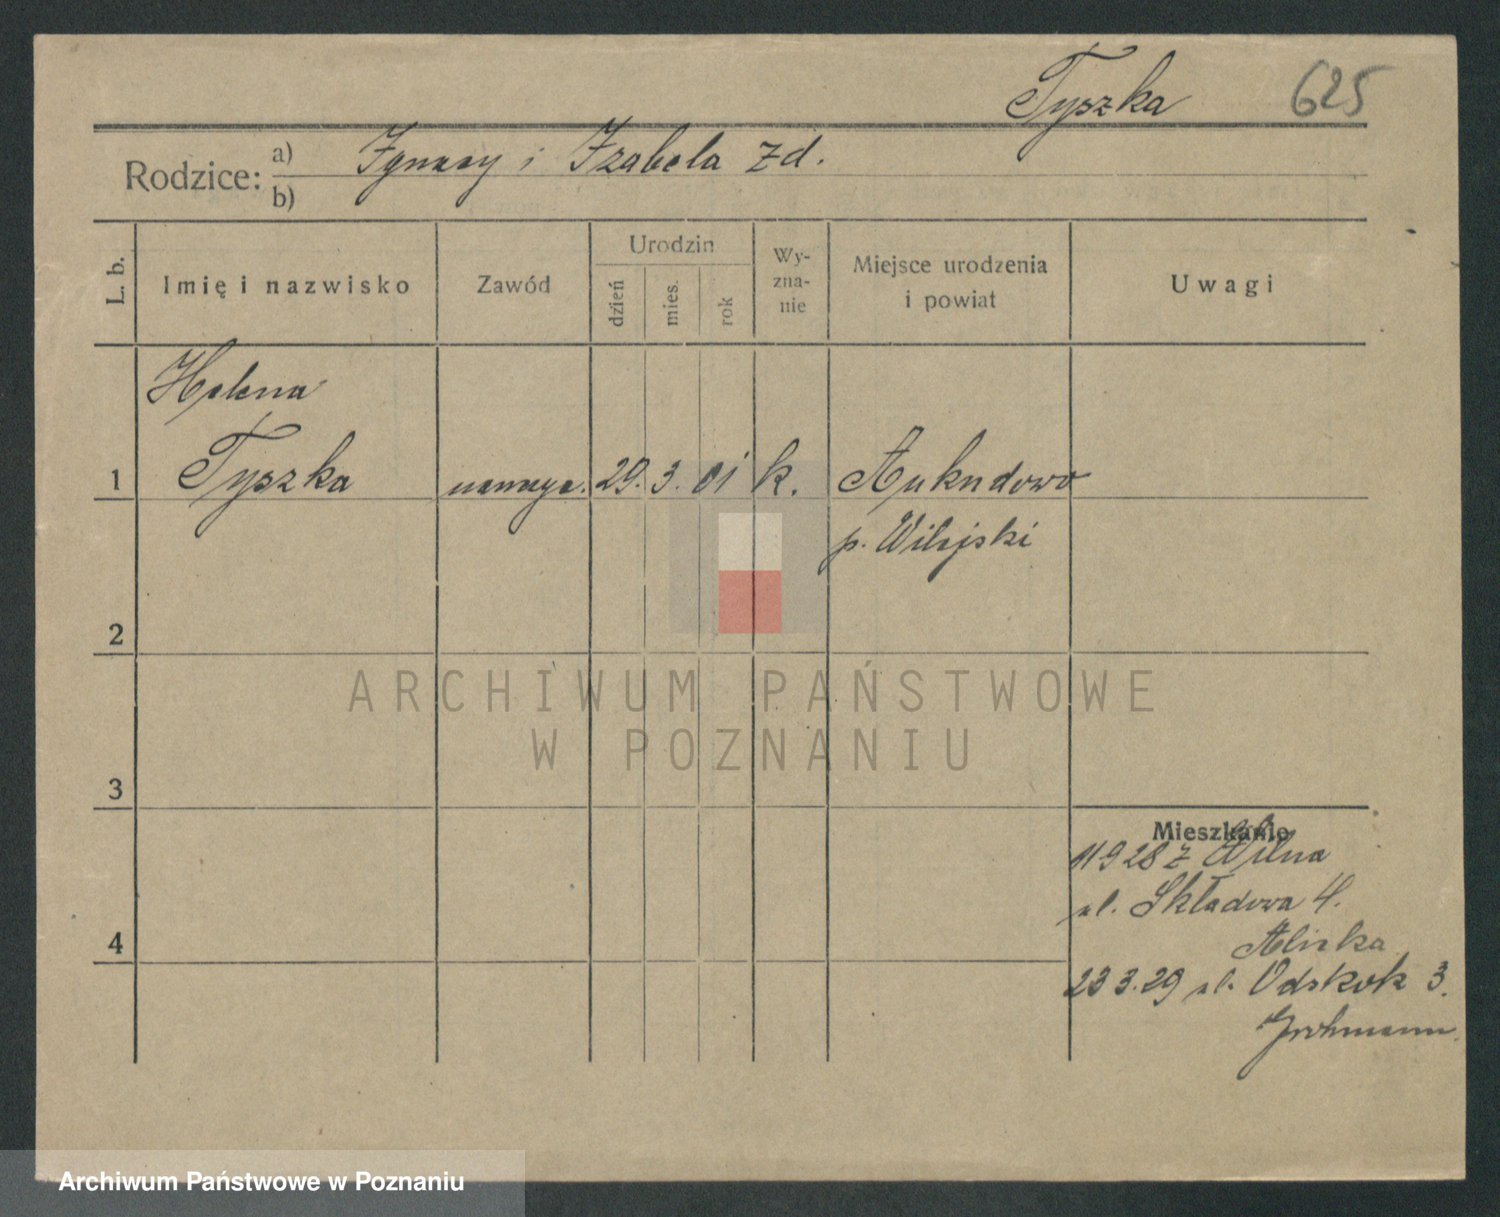 Tyszka 625
Rodzice: a) Ignacy i Izabela zd.
b)
L. b. Imię i nazwisko Zawód Urodzin dzień mies. rok Wyznanie Miejsce urodzenia i powiat Uwagi
Helena
1 Tyszka 29. 3. 01 k.
p. Wilejski
2
ARCHIWUM PAŃSTWOWE
W POZNANIU
3
Mieszkanie
1928 z Wilna
ul. Składowa 4.
4
23 3.29 ul. Odskok 3.
Grohmann.
Archiwum Państwowe w Poznaniu